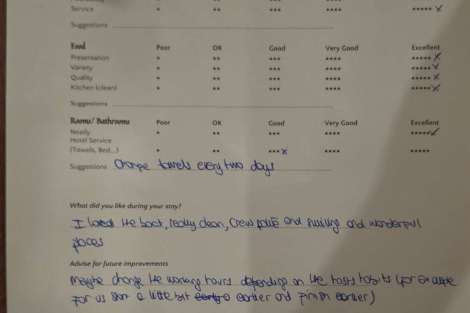 Service * ** *** **** ***** x
Suggestions
Food Poor OK Good Very Good Excellent
Presentation * ** *** **** ***** x
Variety * ** *** **** ***** x
Quality * ** *** **** ***** x
Kitchen (clean) * ** *** **** ***** x
Suggestions
Rooms/ Bathrooms Poor OK Good Very Good Excellent
Ready * ** *** **** ***** x
Hotel Service
(Towels, Bed...) * ** *** x **** *****
Suggestions Change towels every two days
What did you like during your stay?
I loved the boat, really clean, crew polite and smiling and wonderful
places
Advise for future improvements
Maybe change the working hours depending on the hosts habits (for example
for us start a little bit earlier and finish earlier)